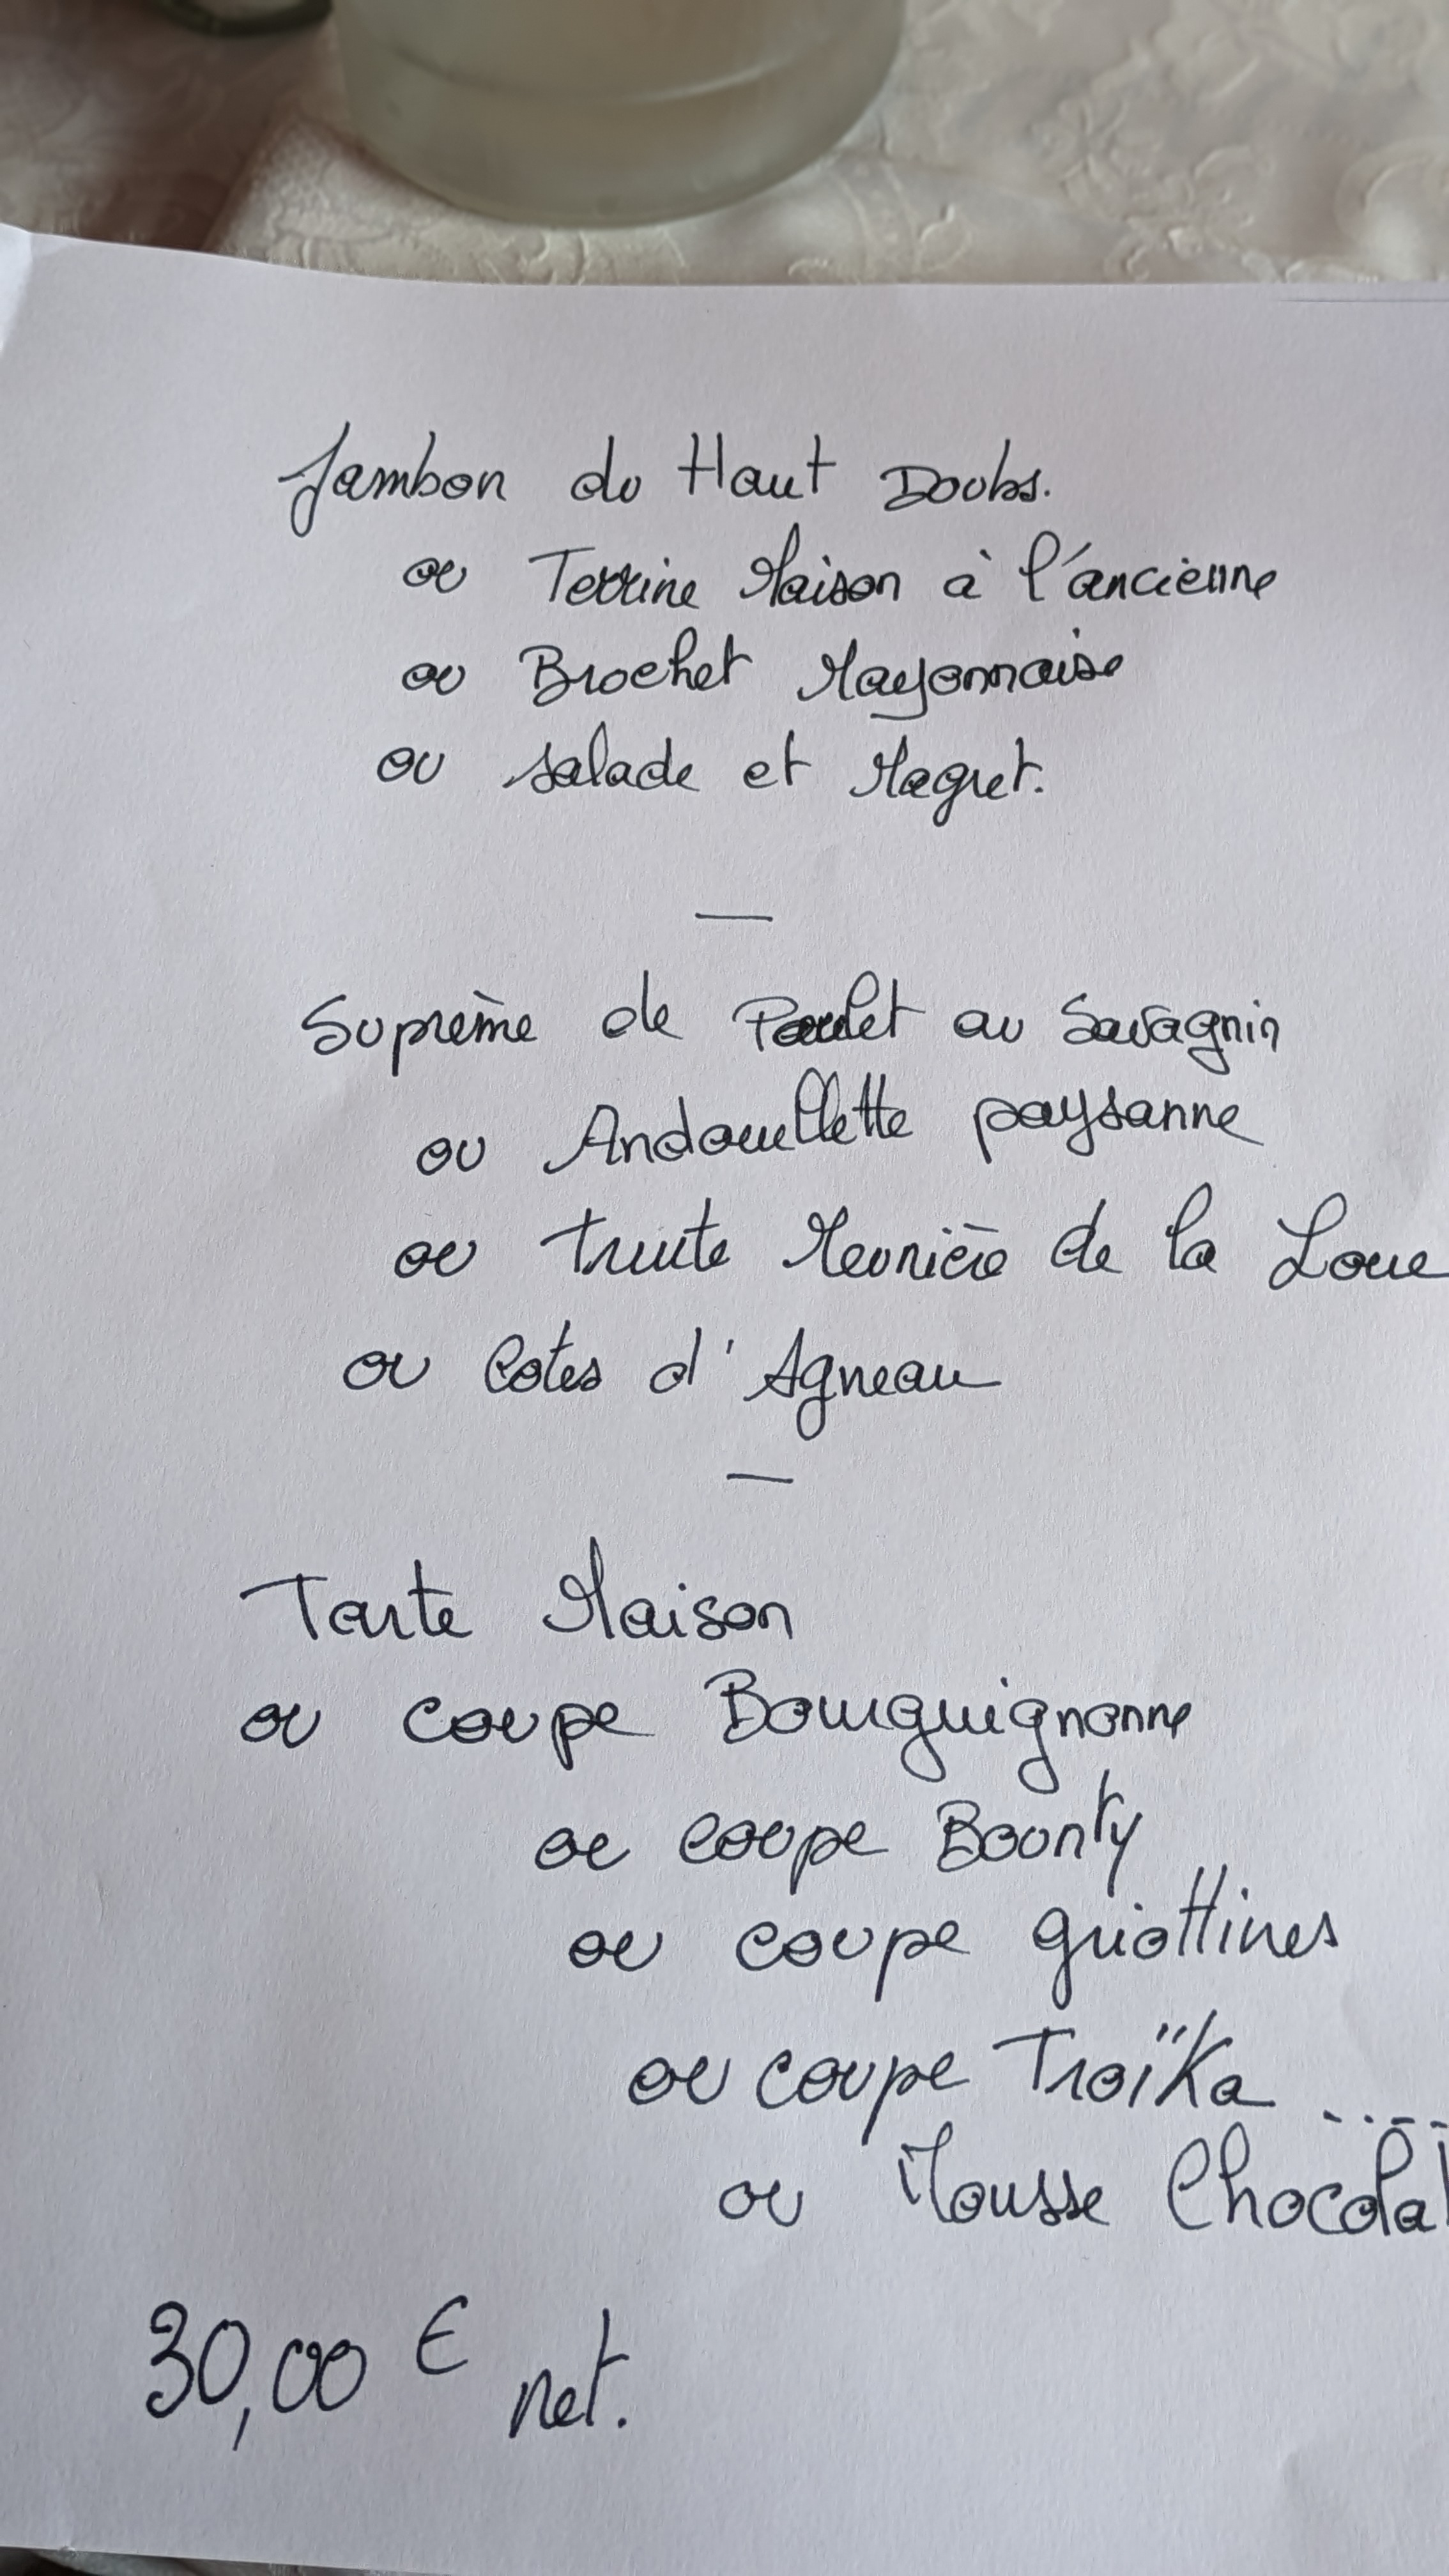 Jambon du Haut Doubs.
ou Terrine Maison à l'ancienne
ou Brochet Mayonnaise
ou Salade et Magret.
—
Suprême de Poulet au Savagnin
ou Andouillette paysanne
ou Truite Meunière de la Loue
ou Cotes d'Agneau
—
Tarte Maison
ou coupe Bourguignonne
ou coupe Bounty
ou coupe griottines
ou coupe Troïka ....
ou Mousse Chocolat
30,00 € net.